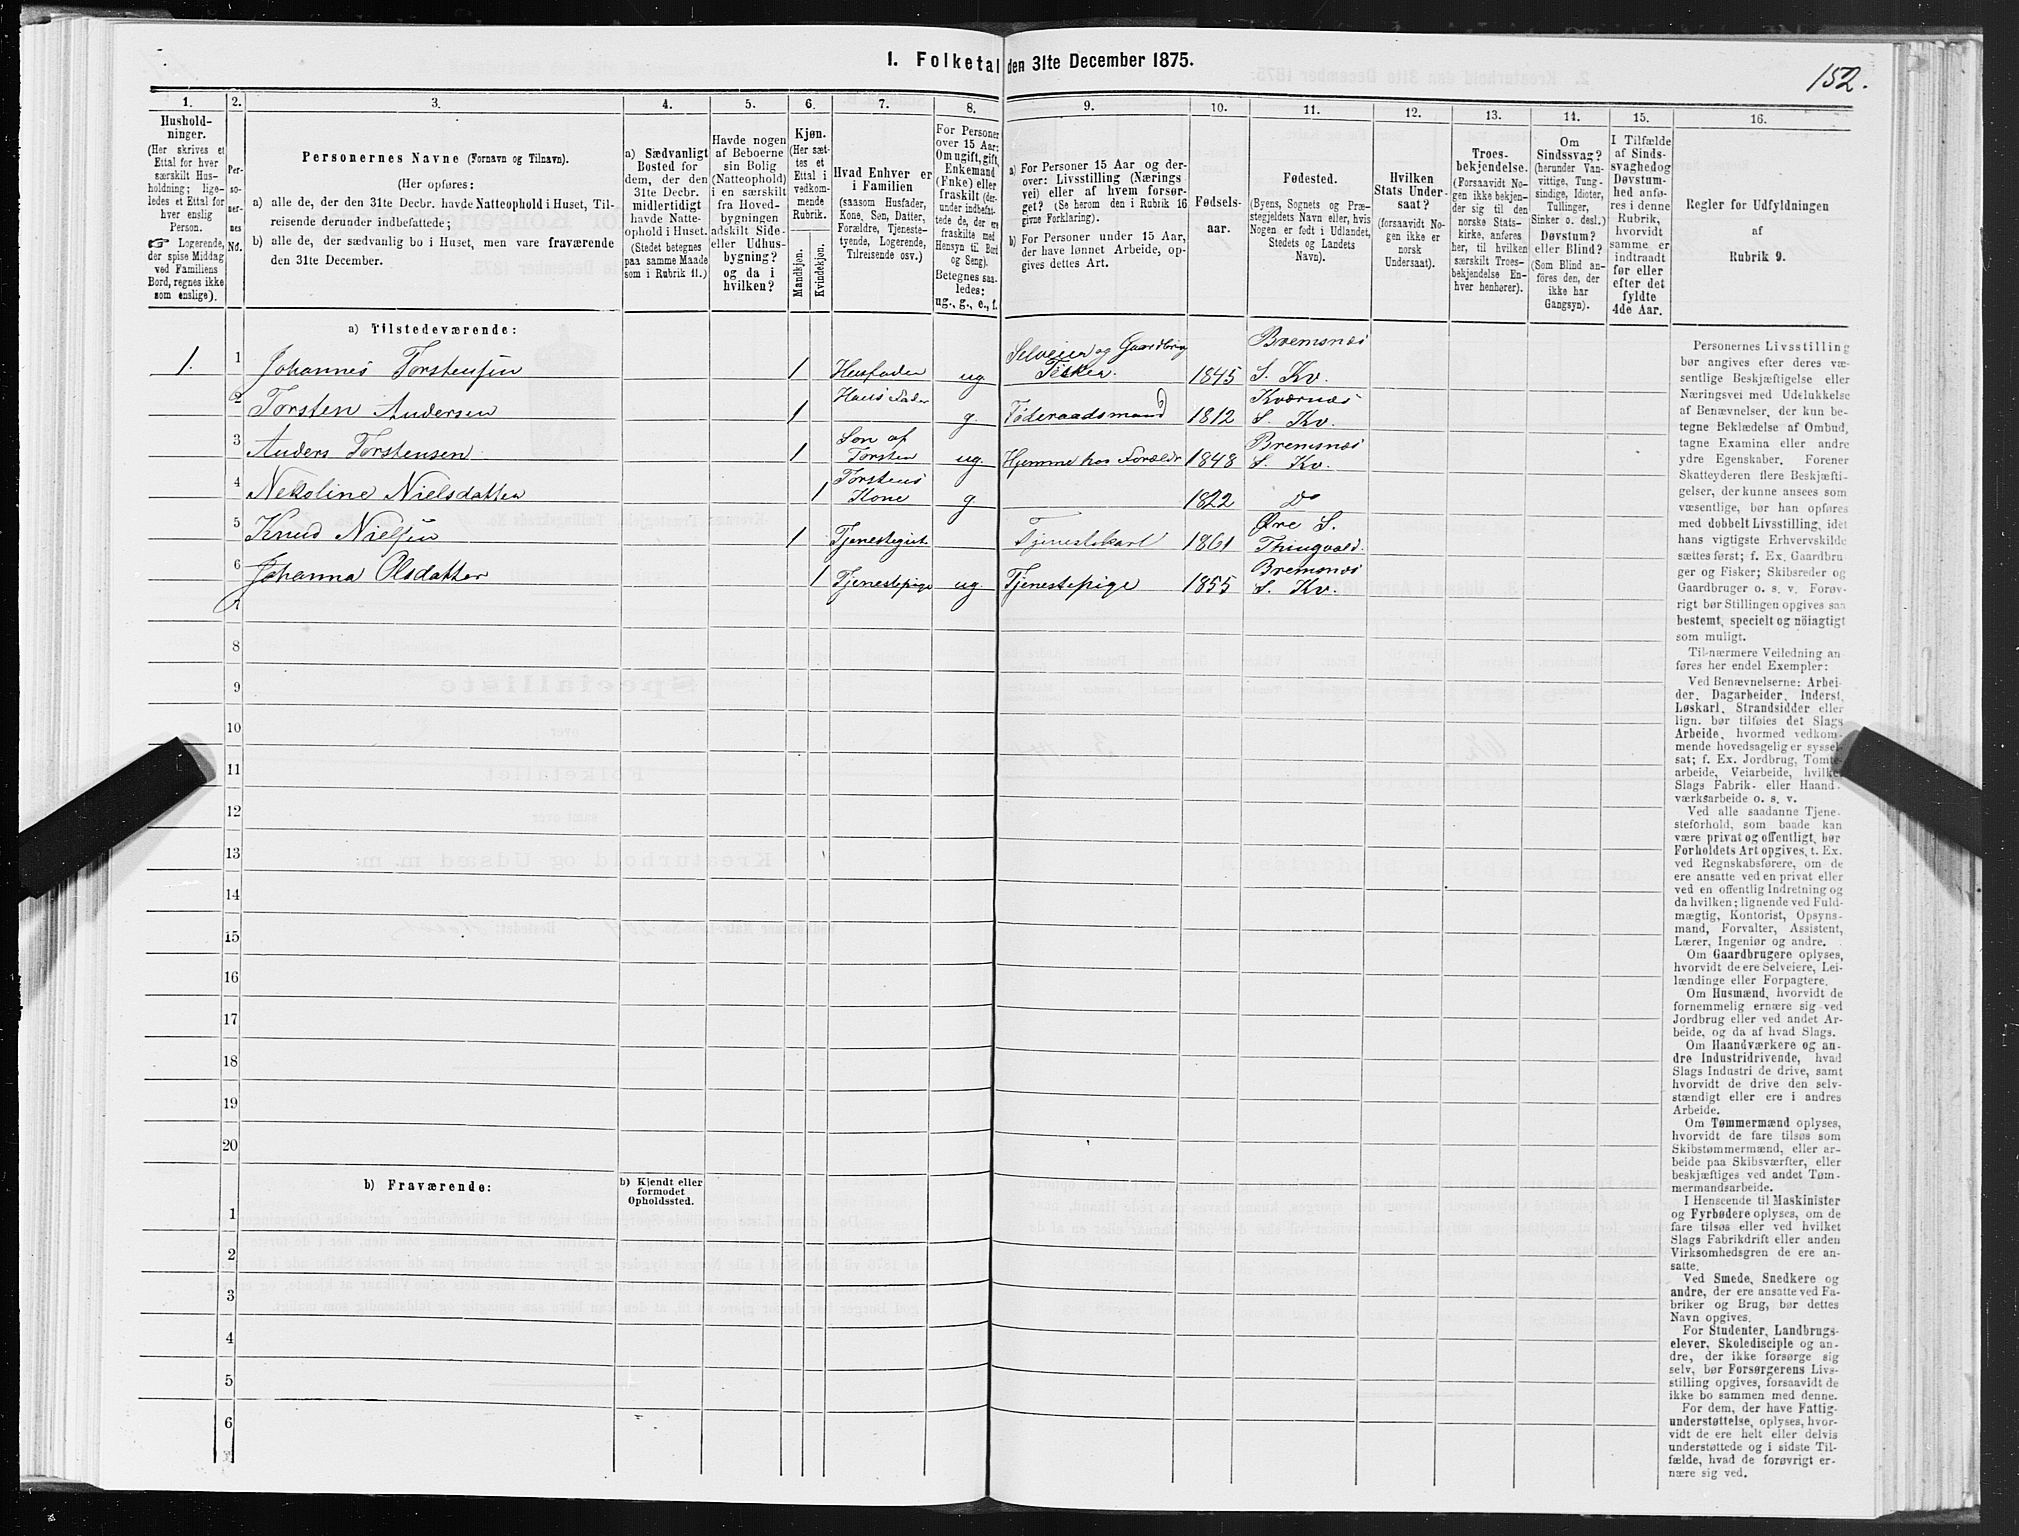 1. Folketal den 31te December 1875.
152.
1.
2.
3.
4.
5.
6.
7.
8.
9.
10.
11.
12.
13.
14.
15.
16.
Hushold-
ninger.
(Her skrives et
Ettal for hver
særskilt Hus-
holdning; lige-
ledes et Ettal for
hver enslig
Person.
☞ Logerende,
der spise Middag
ved Familiens
Bord, regnes ikke
som enslige).
Per-
so-
ner-
nes
No.
Personernes Navne (Fornavn og Tilnavn).
(Her opføres:
a) alle de, der den 31te Decbr. havde Natteophold i Huset, Til-
reisende derunder indbefattede;
b) alle de, der sædvanlig bo i Huset, men vare fraværende
den 31te December.
a) Sædvanligt
Bosted for
dem, der den
31te Decbr.
midlertidigt
havde Natte-
ophold i Huset.
(Stedet betegnes
paa samme Maade
som i Rubrik 11.)
Havde nogen
af Beboerne
sin Bolig
(Natteophold)
i en særskilt
fra Hoved-
bygningen
adskilt Side-
eller Udhus-
bygning?
og da i
hvilken?
Kjøn.
(Her sæt-
tes et
Ettal i
vedkom-
mende
Rubrik.
Mandkjøn.
Kvindekjøn.
Hvad Enhver er
i Familien
(saasom Husfader,
Kone, Søn, Datter,
Forældre, Tjeneste-
tyende, Logerende,
Tilreisende osv.)
For Personer
over 15 Aar:
Om ugift, gift,
Enkemand
(Enke) eller
fraskilt (der-
under indbefat-
tede de, der ere
fraskilte med
Hensyn til Bord
og Seng).
Betegnes saa-
ledes:
ug., g., e., f.
a) For Personer 15 Aar og der-
over: Livsstilling (Nærings-
vei) eller af hvem forsør-
get? (Se herom den i Rubrik 16
givne Forklaring).
b) For Personer under 15 Aar,
der have lønnet Arbeide, op-
gives dettes Art.
Fødsels-
aar.
Fødested.
(Byens, Sognets og Præ-
stegjeldets Navn eller, hvis
Nogen er født i Udlandet,
Stedets og Landets
Navn).
Hvilken
Stats Under-
saat?
(forsaavidt No-
gen ikke er
norsk
Undersaat).
Troes-
bekjendelse.
(Forsaavidt No-
gen ikke bekjen-
der sig til den
norske Stats-
kirke, anføres
her, til hvilken
særskilt Troes-
bekjendelse En-
hver henhører).
Om
Sindssvag?
(herunder Van-
vittige, Tung-
sindige, Idioter,
Tullinger,
Sinker o. desl.)
Døvstum?
eller Blind?
(Som Blind an-
føres den, der
ikke har
Gangsyn).
I Tilfælde
af Sinds-
svaghed og
Døvstum-
hed anfø-
res i denne
Rubrik,
hvorvidt
samme er
indtraadt
før eller
efter det
fyldte
4de Aar.
Regler for Udfyldningen
af
Rubrik 9.
a) Tilstedeværende:
1. 1 Johannes Torstensen 1 Husfader ug. Selveier og Gaardbrug Fisker. 1845 Bremsnæs S. Kv.
2 Torsten Andersen 1 Haus Fader g. Føderaadsmand 1812 Kværnæs S. Kv.
3 Anders Torstensen 1 Søn af Torsten ug. Hjemme hos Forældr 1848 Bremsnæs S. Kv.
4 Nekoline Nielsdatter 1 Torstens Kone g. 1822 do
5 Knud Nielsen 1 Tjenestegut Tjenestekarl 1861 Øre S. Thingvold.
6 Johanna Olsdatter 1 Tjenestepige ug. Tjenestepige 1855 Bremsnæs S. Kv.
7
8
9
10
11
12
13
14
15
16
17
18
19
20
b) Fraværende:
b) Kjendt eller
formodet
Opholdssted.
1
2
3
4
5
6
Personernes Livsstilling
bør angives efter deres væ-
sentlige Beskjæftigelse eller
Næringsvei med Udelukkelse
af Benævnelser, der kun be-
tegne Beklædelse af Ombud,
tagne Examina eller andre
ydre Egenskaber. Forener
Skatteyderen flere Beskjæfti-
gelser, der kunne ansees som
væsentlige, bør han opføres
med dobbelt Livsstilling, idet
hans vigtigste Erhvervskilde
sættes først; f. Ex. Gaardbru-
ger og Fisker; Skibsreder og
Gaardbruger o. s. v. Forøv-
rigt bør Stillingen opgives saa
bestemt, specielt og nöiagtigt
som muligt.
Til nærmere Veiledning an-
føres her endel Exempler:
Ved Benævnelserne: Arbei-
der, Dagarbeider, Inderst,
Løskarl, Strandsidder eller
lign. bør tilføies det Slags
Arbeide, hvormed vedkom-
mende hovedsagelig er syssel-
sat; f. Ex. Jordbrug, Tomte-
arbeide, Veiarbeide, hvilket
Slags Fabrik- eller Haand-
værksarbeide o. s. v.
Ved alle saadanne Tjene-
steforhold, som baade kan
være privat og offentligt, bør
Forholdets Art opgives, t. Ex.
ved Regnskabsførere, om de
ere ansatte ved en privat eller
ved en offentlig Indretning og
da hvilken; lignende ved Fuld-
mægtig, Kontorist, Opsyns-
mand, Forvalter, Assistent,
Lærer, Ingeniør og andre.
Om Gaardbrugere oplyses,
hvorvidt de ere Selveiere, Lei-
lændinge eller Forpagtere.
Om Husmænd, hvorvidt de
fornemmelig ernære sig ved
Jordbrug eller ved andet Ar-
beide, og da af hvad Slags.
Om Haandværkere og an-
dre Industridrivende, hvad
Slags Industri de drive, samt
hvorvidt de drive den selv-
stændigt eller ere i andres
Arbeide.
Om Tømmermænd oplyses,
hvorvidt de fare tilsøs som
Skibstømmermænd, eller ar-
beide paa Skibsværfter, eller
beskjæftiges ved andet Tøm-
mermandsarbeide.
I Henseende til Maskinister
og Fyrbødere oplyses, om de
fare tilsøs eller ved hvilket
Slags Fabrikdrift eller anden
Virksomhedsgren de ere an-
satte.
Ved Smede, Snedkere og
andre, der ere ansatte ved Fa-
briker og Brug, bør dettes
Navn opgives.
For Studenter, Landbrugs-
elever, Skoledisciple og an-
dre, der ikke forsørge sig
selv, bør Forsørgerens Livs-
stilling opgives, forsaavidt de
ikke bo sammen med denne.
For dem, der have Fattig-
understøttelse, oplyses, hvor-
vidt de ere helt eller delvis
understøttede og i sidste Til-
fælde, hvad de forøvrigt er-
nære sig ved.